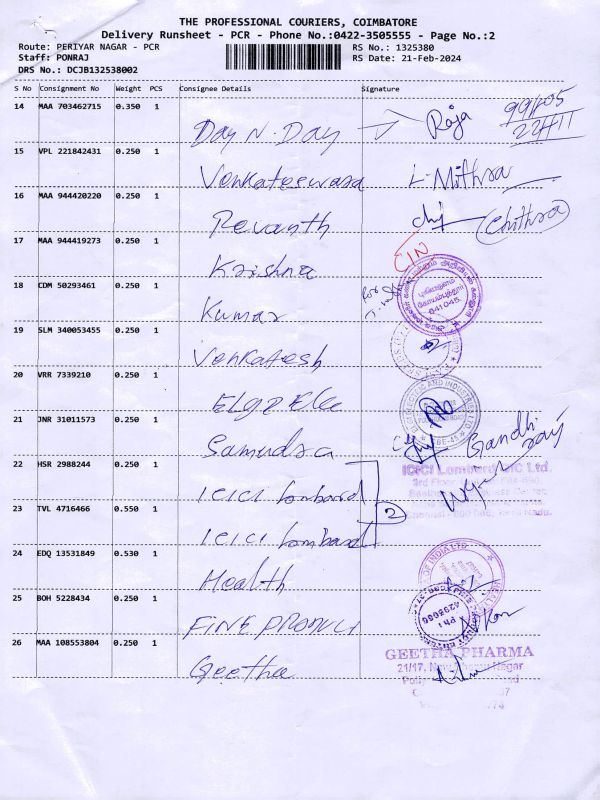 THE PROFESSIONAL COURIERS, COIMBATORE
Delivery Runsheet - PCR - Phone No.:0422-3505555 - Page No.:2
Route: PERIYAR NAGAR - PCR RS No.: 1325380
Staff: PONRAJ RS Date: 21-Feb-2024
DRS No.: DCJB132538002
S No Consignment No Weight PCS Consignee Details Signature
14 MAA 703462715 0.350 1
Day N. Day Raja
15 VPL 221842431 0.250 1
Venkateswara L. Mithra
16 MAA 944420220 0.250 1
Revanth (Chithra)
17 MAA 944419273 0.250 1
Krishna
18 CDM 50293461 0.250 1
Kumar 641045.
19 SLM 340053455 0.250 1
Venkatesh
20 VRR 7339210 0.250 1
Elgi Ele
21 JNR 31011573 0.250 1
Samudra Gandhi
22 HSR 2988244 0.250 1
ICICI Lombard ICICI Lombard GIC Ltd.
23 TVL 4716466 0.550 1
ICICI Lombard 2
24 EDQ 13531849 0.530 1
Health
25 BOH 5228434 0.250 1
Fine
26 MAA 108553804 0.250 1
Geetha GEETHA PHARMA